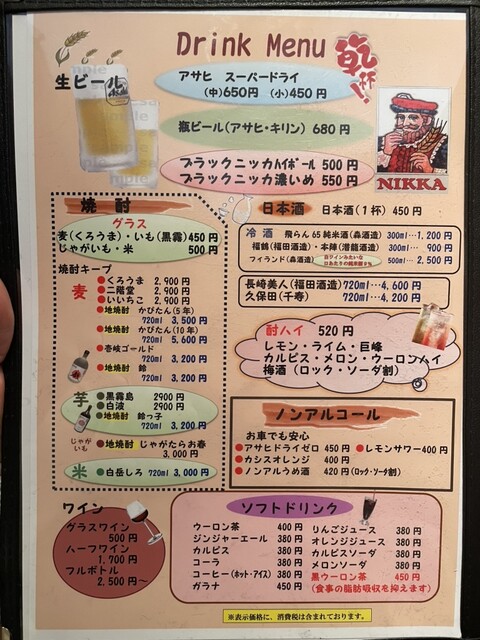 Drink Menu
乾杯!
生ビール
アサヒ スーパードライ
(中)650円 (小)450円
瓶ビール(アサヒ・キリン) 680円
ブラックニッカハイボール 500円
ブラックニッカ濃いめ 550円
NIKKA
焼酎
グラス
麦(くろうま)・いも(黒霧)450円
じゃがいも・米 500円
焼酎キープ
麦
●くろうま 2,900円
●二階堂 2,900円
●いいちこ 2,900円
●地焼酎 かぴたん(5年)
720ml 3,500円
●地焼酎 かぴたん(10年)
720ml 5,600円
●壱岐ゴールド
720ml 3,200円
●地焼酎 鈴
720ml 3,200円
芋
●黒霧島 2900円
●白波 2900円
●地焼酎 鈴っ子
720ml 3,200円
じゃがいも
●地焼酎 じゃがたらお春
3,000円
米
●白岳しろ 720ml 3,000円
日本酒 日本酒(1杯) 450円
冷酒 飛らん65純米酒(森酒造) 300ml…1,200円
福鶴(福田酒造)・本陣(潜龍酒造) 300ml… 900円
フィランド(森酒造)
白ワインみたいな
500ml…2,500円
長崎美人(福田酒造)720ml…4,600円
久保田(千寿) 720ml…4,200円
酎ハイ 520円
レモン・ライム・巨峰
カルピス・メロン・ウーロンハイ
梅酒(ロック・ソーダ割)
ノンアルコール
お車でも安心
●アサヒドライゼロ 450円 ●レモンサワー400円
●カシスオレンジ 400円
●ノンアルうめ酒 420円(ロック・ソーダ割)
ワイン
グラスワイン
500円
ハーフワイン
1,700円
フルボトル
2,500円~
ソフトドリンク
ウーロン茶 400円
ジンジャーエール 380円
カルピス 380円
コーラ 380円
コーヒー(ホット・アイス) 380円
ガラナ 450円
りんごジュース 380円
オレンジジュース 380円
カルピスソーダ 380円
メロンソーダ 380円
黒ウーロン茶 450円
(食事の脂肪吸収を抑えます)
※表示価格に、消費税は含まれております。